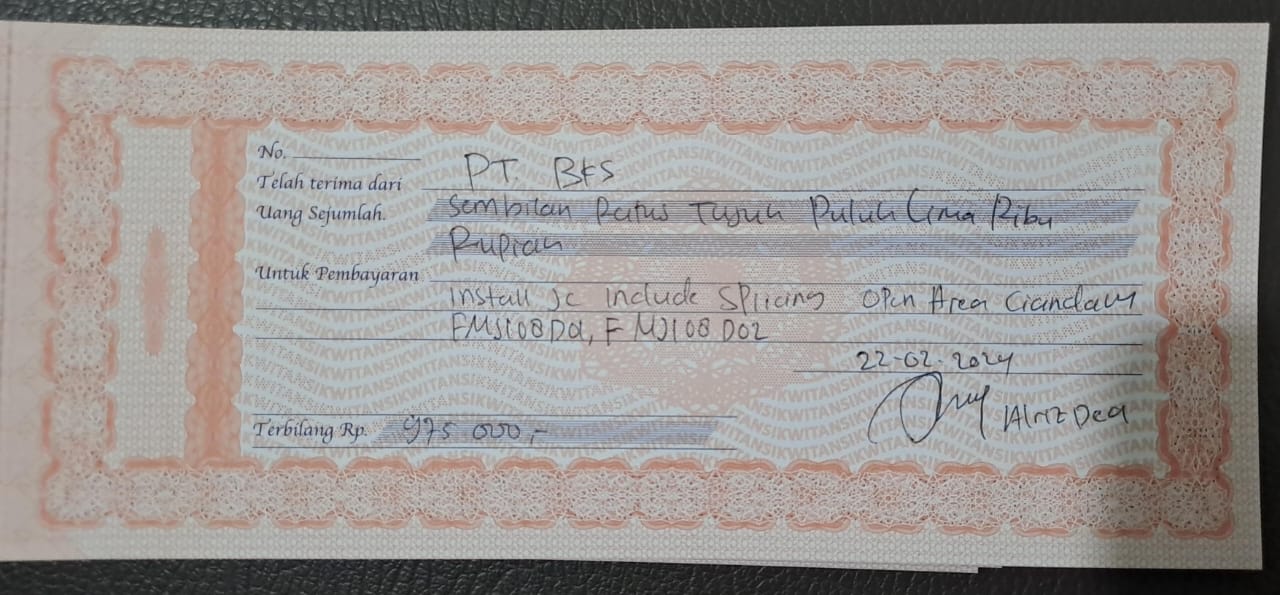 No.
Telah terima dari PT. BKS
Uang Sejumlah. Sembilan Ratus Tujuh Puluh Lima Ribu
Rupiah
Untuk Pembayaran
Install JC include Splicing Open Area Ciandam
FMJ108D01, FMJ108D02
22-02-2024
Terbilang Rp. 975 000,-